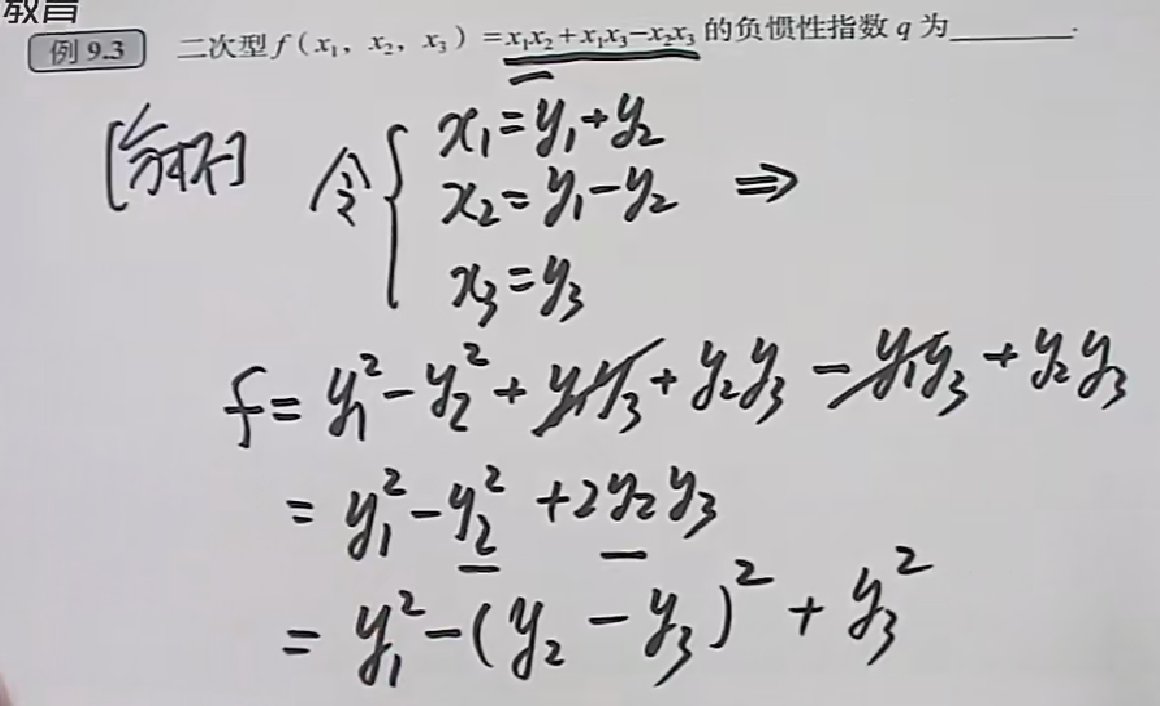 教育
例 9.3 二次型 f(x₁, x₂, x₃)=x₁x₂+x₁x₃-x₂x₃ 的负惯性指数 q 为______.
[分析] 令 { x₁=y₁+y₂
x₂=y₁-y₂ ⇒
x₃=y₃
f=y₁²-y₂²+y₁y₃+y₂y₃-y₁y₃+y₂y₃
=y₁²-y₂²+2y₂y₃
=y₁²-(y₂-y₃)²+y₃²